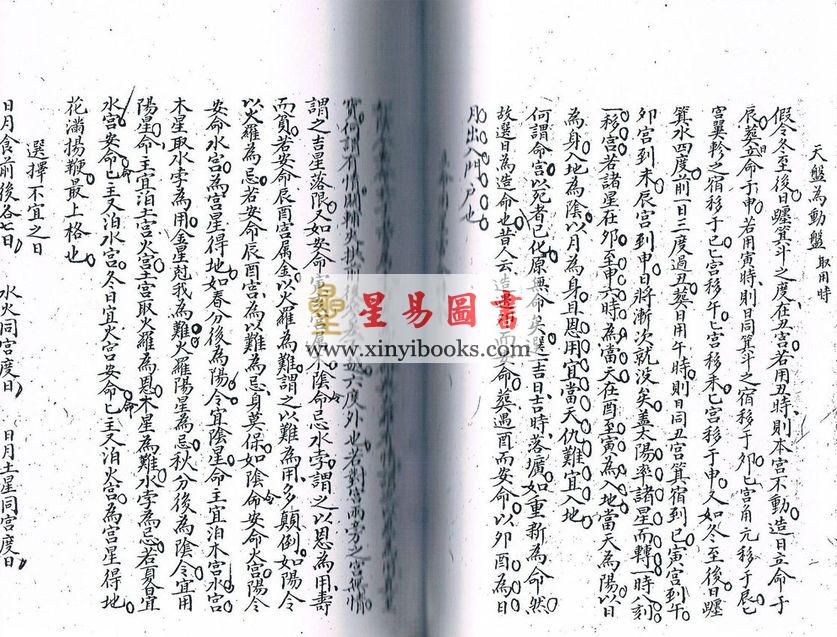 天盤為動盤 取用時
假令冬至後日躔箕斗之度在丑宮若用丑時則本宮不動造日立命于
辰葬立命于申若用寅時則日同箕斗之宿移于夘巳宮角元移于辰巳
宮翼軫之宿移于巳巳宮移午巳宮移未巳宮移于申又如冬至後日躔
箕水四度前一日三度過丑葬日用午時則日同丑宮箕宿到巳寅宮到午
夘宮到未辰宮到申日將漸次就沒矣蓋太陽率諸星而轉一時刻
一移宮若諸星在夘至申六時為當天在酉至寅為入地當天為陽以日
為身入地為陰以月為身且恩用宜當天仇難宜入地
何謂命宮以死者已化原無命矣選一吉日吉時落壙如重新為命然
故選日為造命也昔人云造 而安命葬遇酉而安命以夘酉為日
月出入門户也
何謂有情 六度外也若對宮兩旁之宮無情
謂之吉星落限又如安命 陰命忌水孛謂之以恩為用壽
而貧若安命辰酉宮屬金以火羅為難謂之以難為用多顛倒如陽令
以火羅為忌若安命辰酉宮為以難為忌身莫保如陰令安命火宮陽令
安命水宮為宮星得地如春分後為陽令宜陰星命主宜泊木宮水宮
木星取水孛為用金星尅我為難火羅陽星為忌秋分後為陰令宜用
陽星命主宜泊土宮火宮土宮取火羅為恩木星為難水孛為忌若夏日宜
水宮安命命主又泊水宮冬日宜火宮安命命主又泊火宮為宮星得地
花滿揚鞭最上格也
選擇不宜之日
日月食前後各七日 水火同宮度日 日月土星同宮度日
星易圖書
www.xinyibooks.com